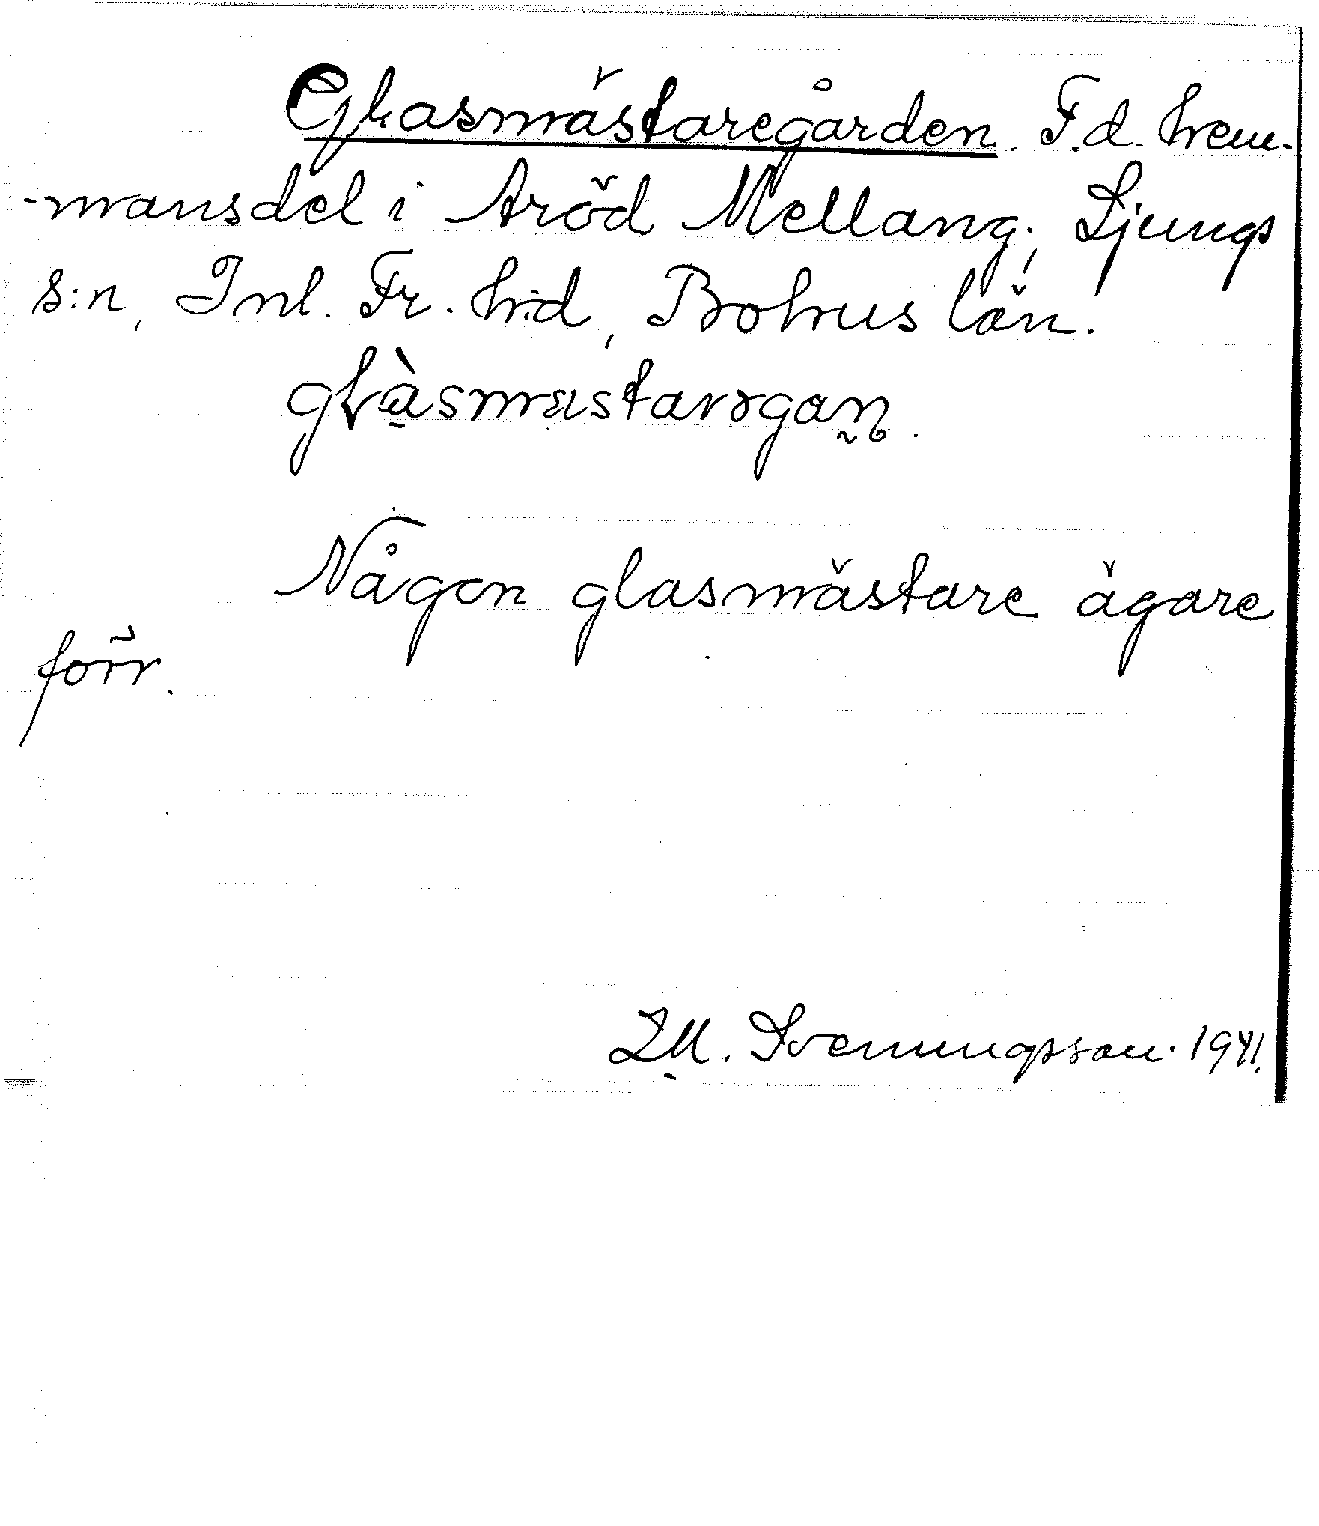 Glasmästaregården. F.d. hem-
-mansdel i Aröd Mellang., Ljungs
s:n, Inl. Fr. hd, Bohus län.
Någon glasmästare ägare
förr.
Svenungsson. 1941.